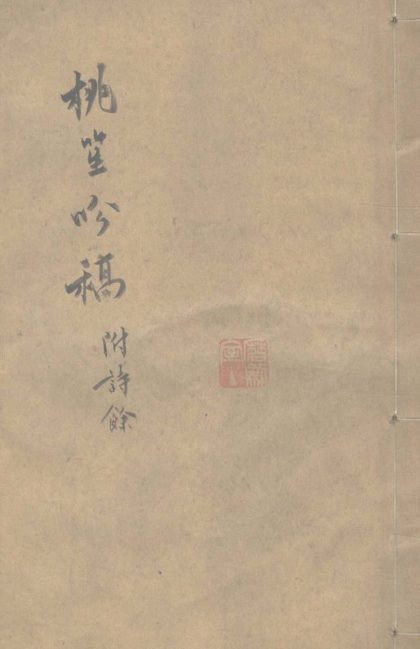 桃笙吟稿
附詩餘